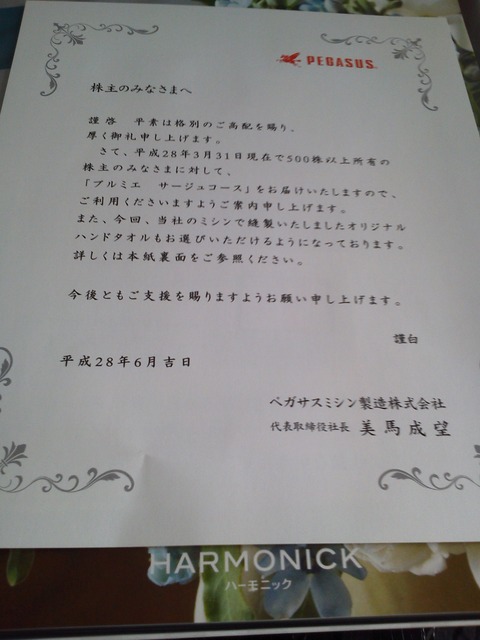 PEGASUS
株主のみなさまへ
謹啓　平素は格別のご高配を賜り、
厚く御礼申し上げます。
さて、平成28年3月31日現在で500株以上所有の
株主のみなさまに対して、
「プルミエ　サージュコース」をお届けいたしますので、
ご利用くださいますようご案内申し上げます。
また、今回、当社のミシンで縫製いたしましたオリジナル
ハンドタオルもお選びいただけるようになっております。
詳しくは本紙裏面をご参照ください。
今後ともご支援を賜りますようお願い申し上げます。
謹白
平成28年6月吉日
ペガサスミシン製造株式会社
代表取締役社長　美馬成望
HARMONICK
ハーモニック